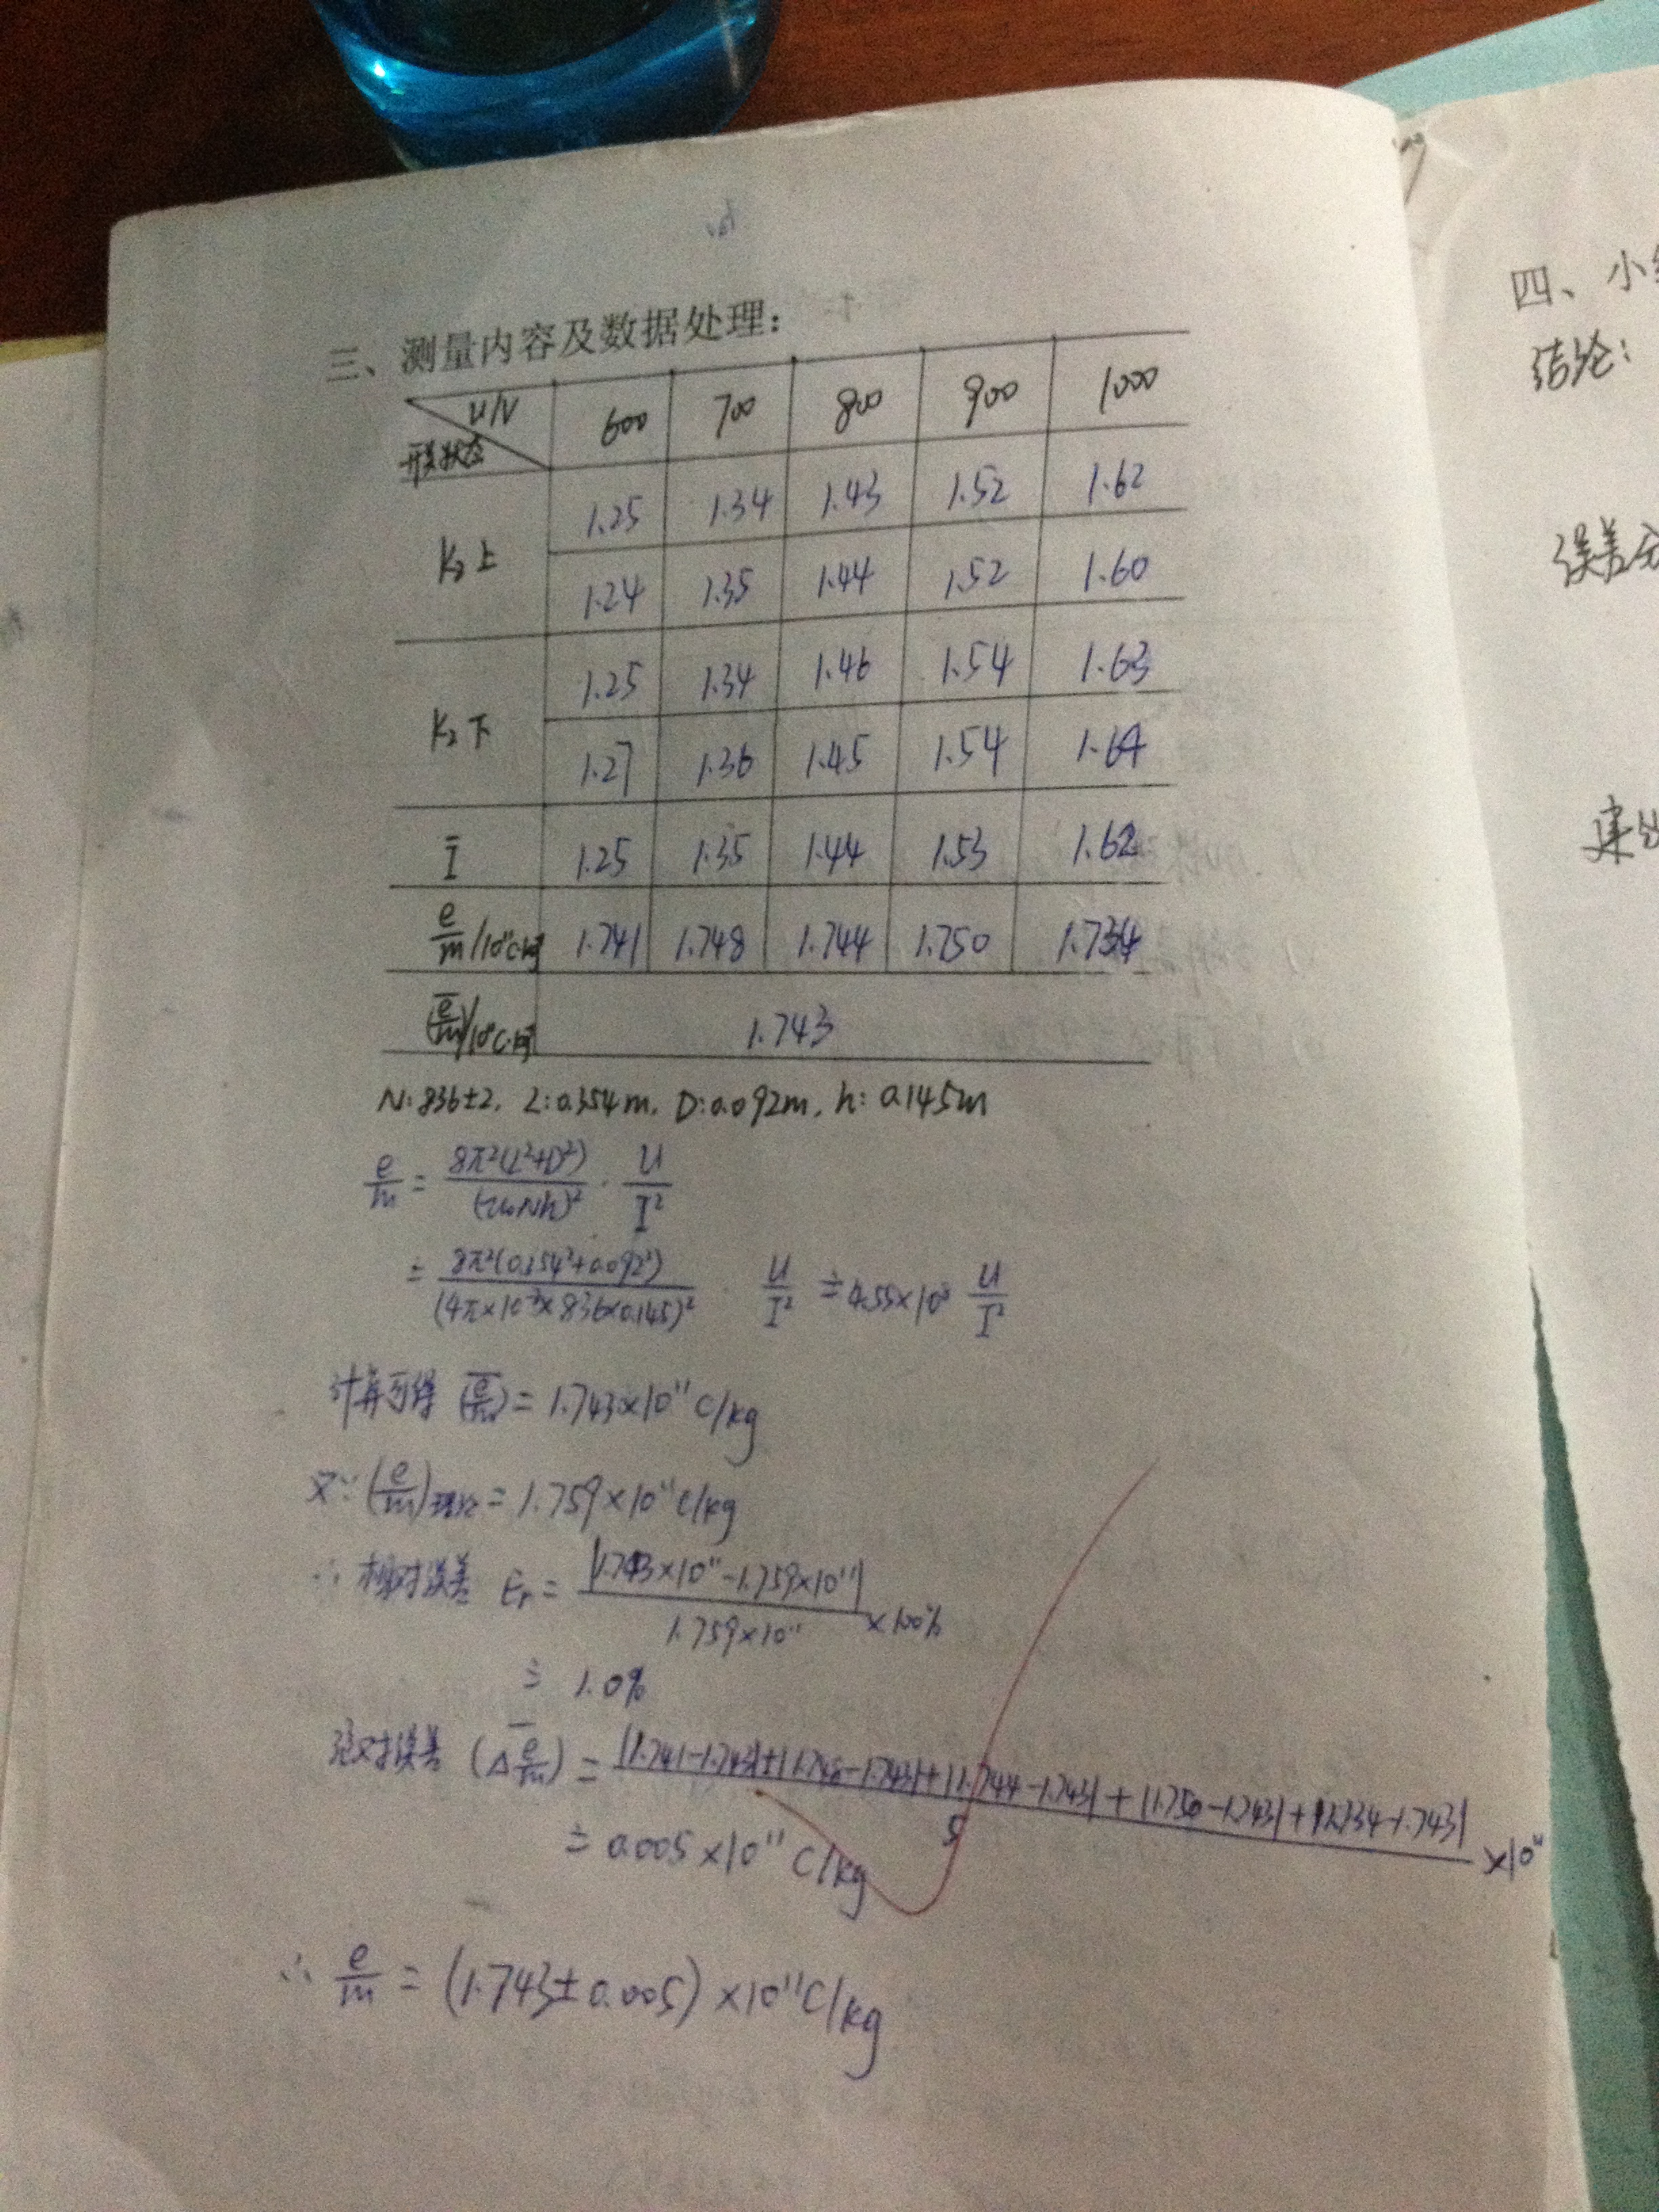 三、测量内容及数据处理：
U/V 600 700 800 900 1000
状态
K₂上 1.25 1.34 1.43 1.52 1.62
1.24 1.35 1.44 1.52 1.60
K₂下 1.25 1.34 1.46 1.54 1.63
1.27 1.36 1.45 1.54 1.64
Ī 1.25 1.35 1.44 1.53 1.62
e/m /10¹¹C·kg⁻¹ 1.741 1.748 1.744 1.750 1.734
(e/m)‾/10¹¹C·kg⁻¹ 1.743
N: 836±2, L: 0.354m, D: 0.092m, h: 0.145m
e/m = 8π²(L²+D²)/(μ₀Nh)² · U/I²
= 8π²(0.354²+0.092²)/(4π×10⁻⁷×836×0.145)² · U/I² ≐ 4.55×10⁸ U/I²
计算可得 (e/m)‾ = 1.743×10¹¹ C/kg
又∵ (e/m)理论 = 1.759×10¹¹ C/kg
∴ 相对误差 Er = |1.743×10¹¹-1.759×10¹¹|/1.759×10¹¹ ×100%
≐ 1.0%
绝对误差 (Δe/m)‾ = |1.741-1.743|+|1.748-1.743|+|1.744-1.743|+|1.750-1.743|+|1.734-1.743|/5 ×10¹¹
≐ 0.005×10¹¹ C/kg
∴ e/m = (1.743±0.005)×10¹¹ C/kg
四、小
结论：
误差分